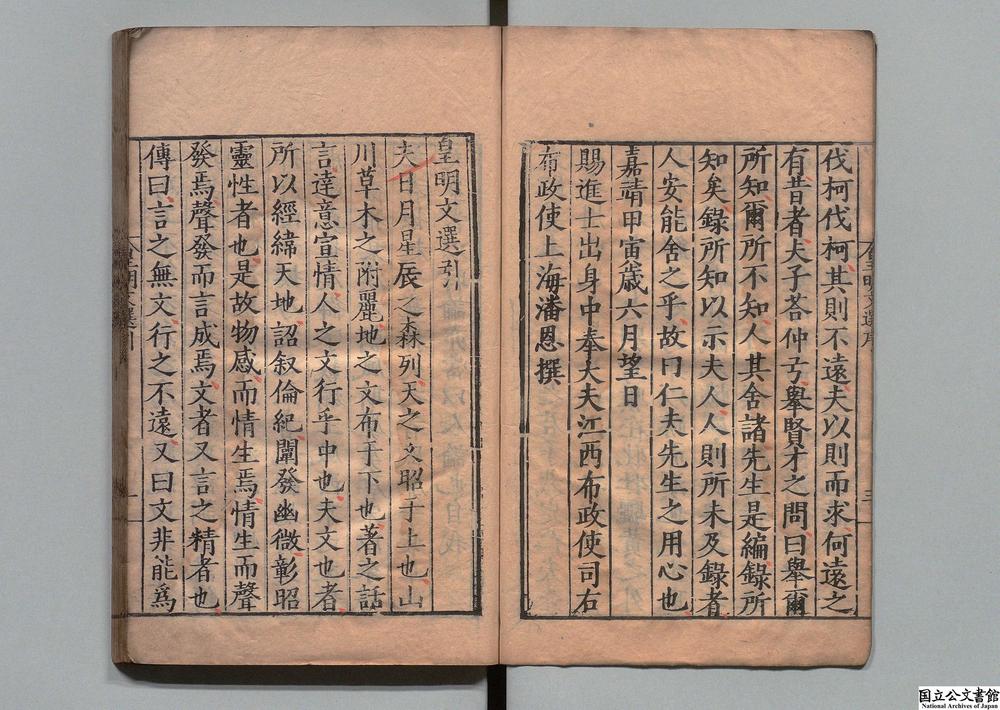 伐柯伐柯其則不遠夫以則而求何遠之
有昔者夫子荅仲弓舉賢才之問曰舉爾
所知爾所不知人其舍諸先生是編錄所
知矣錄所知以示夫人人則所未及錄者
人安能舍之乎故曰仁夫先生之用心也
嘉靖甲寅歲六月望日
賜進士出身中奉大夫江西布政使司右
布政使上海潘恩撰
皇明文選引
夫日月星辰之森列天之文昭于上也山
川草木之附麗地之文布于下也著之話
言達意宣情人之文行乎中也夫文也者
所以經緯天地詔叙倫紀闡發幽微彰昭
靈性者也是故物感而情生焉情生而聲
發焉聲發而言成焉文者又言之精者也
傳曰言之無文行之不遠又曰文非能為
皇明文選序
三
皇明文選引
一
国立公文書館
National Archives of Japan